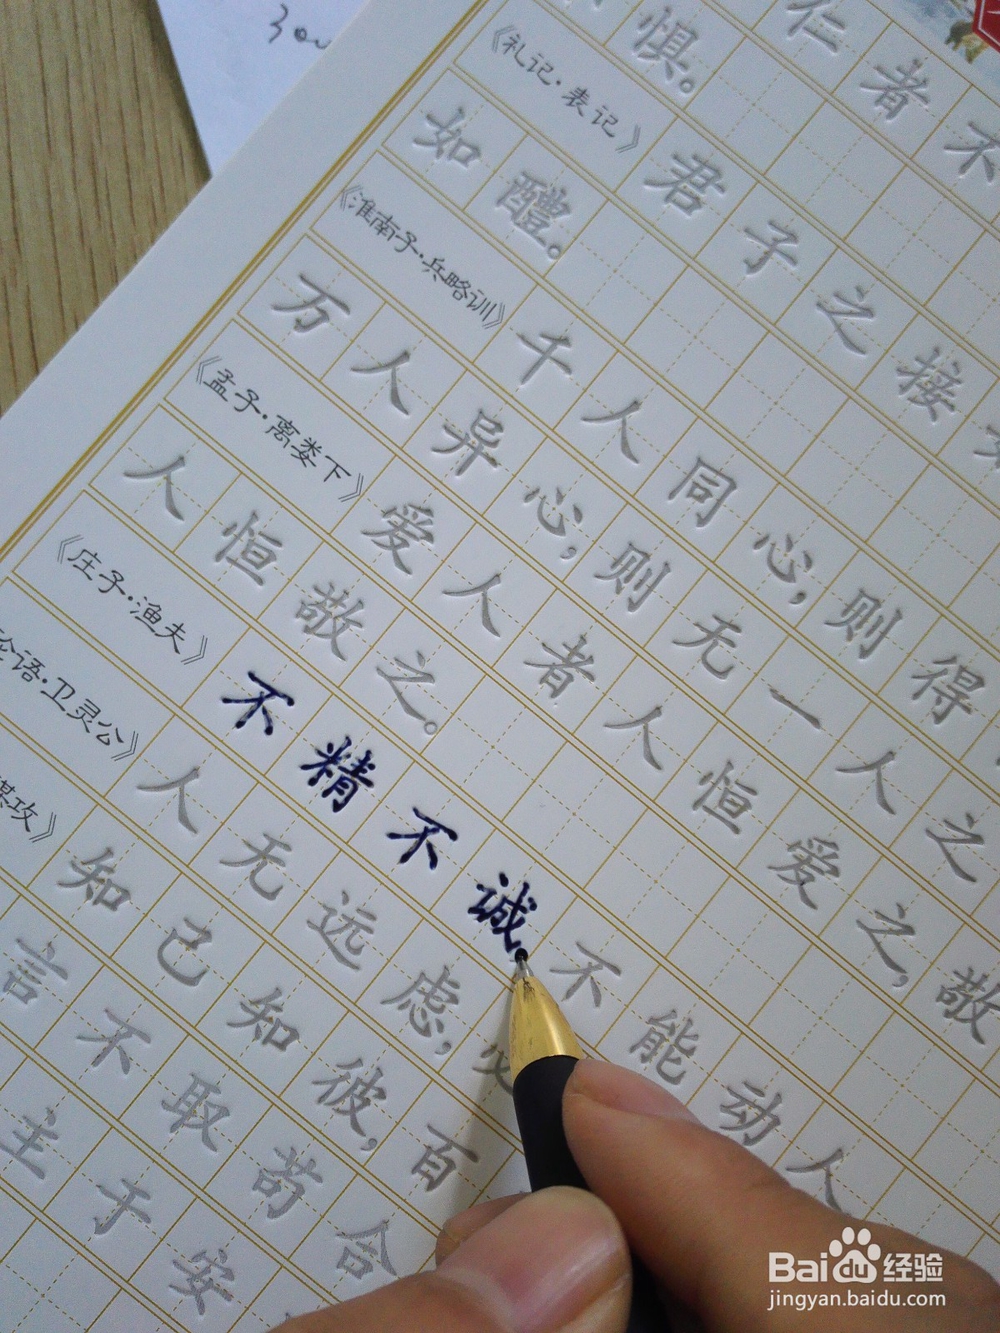 仁者不
惧。
《礼记·表记》君子之接
如醴。
《淮南子·兵略训》千人同心，则得
万人异心，则无一人之
《孟子·离娄下》爱人者人恒爱之，敬
人恒敬之。
《庄子·渔夫》不精不诚，不能动人
论语·卫灵公》人无远虑，必
谋攻》知己知彼，百
言不取苟合
主于安
Bai 经验
jingyan.baidu.com